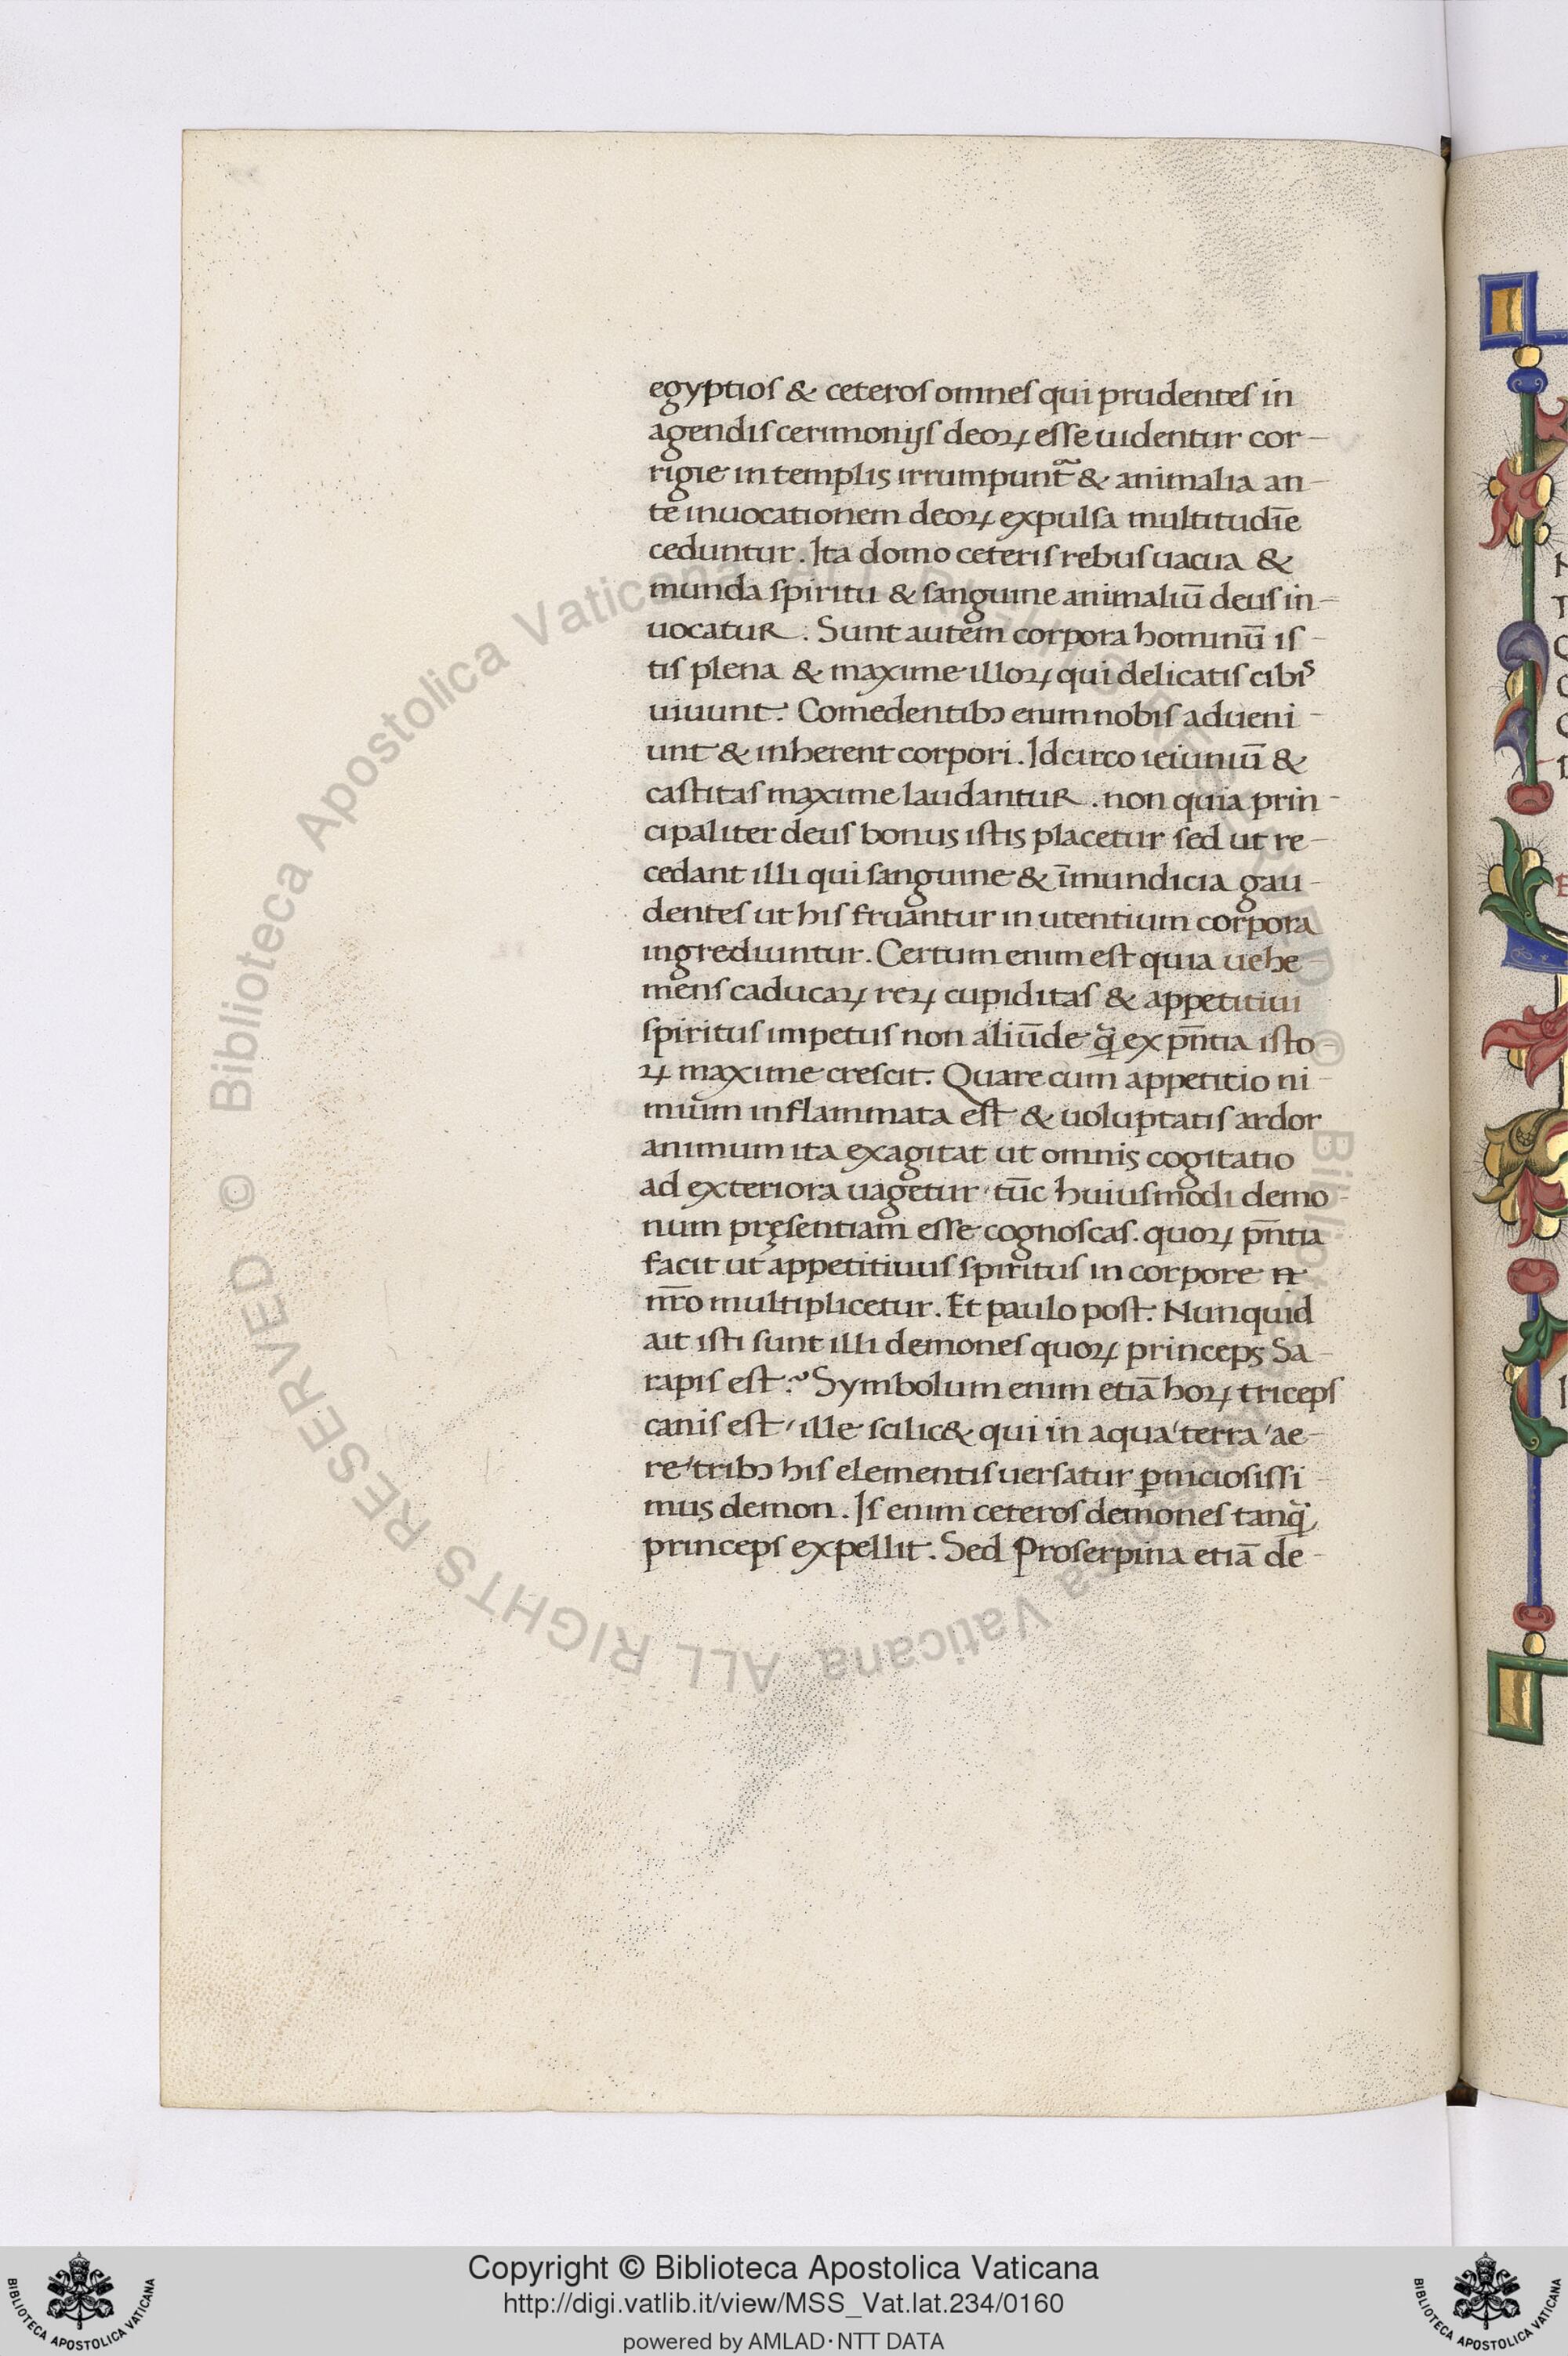 egyptios & ceteros omnes qui prudentes in
agendis cerimonijs deoꝝ esse uidentur cor-
rigie in templis irrumpunt᷑ & animalia an-
te inuocationem deoꝝ expulsa multitudīe
ceduntur. Ita domo ceteris rebus uacua &
munda spiritu & sanguine animaliū deus in-
uocatur. Sunt autem corpora hominū is-
tis plena & maxime illoꝝ qui delicatis cibis
uiuunt. Comedentibꝫ enim nobis adueni-
unt & inherent corpori. Idcirco ieiuniū &
castitas maxime laudantur. non quia prin-
cipaliter deus bonus istis placetur sed ut re-
cedant illi qui sanguine & īmundicia gau-
dentes ut his fruantur in utentium corpora
ingrediuntur. Certum enim est quia uehe-
mens caducaꝝ reꝝ cupiditas & appetitiui
spiritus impetus non aliūde q̃ ex pñtia isto-
ꝝ maxime crescit. Quare cum appetitio ni-
mium inflammata est & uoluptatis ardor
animum ita exagitat ut omnis cogitatio
ad exteriora uagetur tūc huiusmodi demo-
num pręsentiam esse cognoscas. quoꝝ pñtia
facit ut appetitiuus spiritus in corpore n
nr̄o multiplicetur. Et paulo post. Nunquid
ait isti sunt illi demones quoꝝ princeps Sa-
rapis est? Symbolum enim etiā hoꝝ triceps
canis est / ille scilic& qui in aqua / terra / ae-
re / tribꝫ his elementis uersatur ꝑniciosissi-
mus demon. Is enim ceteros demones tanq̃
princeps expellit. Sed Proserpina etiā de-
Copyright © Biblioteca Apostolica Vaticana
http://digi.vatlib.it/view/MSS_Vat.lat.234/0160
powered by AMLAD·NTT DATA
BIBLIOTECA APOSTOLICA VATICANA
BIBLIOTECA APOSTOLICA VATICANA
© Biblioteca Apostolica Vaticana ALL RIGHTS RESERVED
© Biblioteca Apostolica Vaticana ALL RIGHTS RESERVED